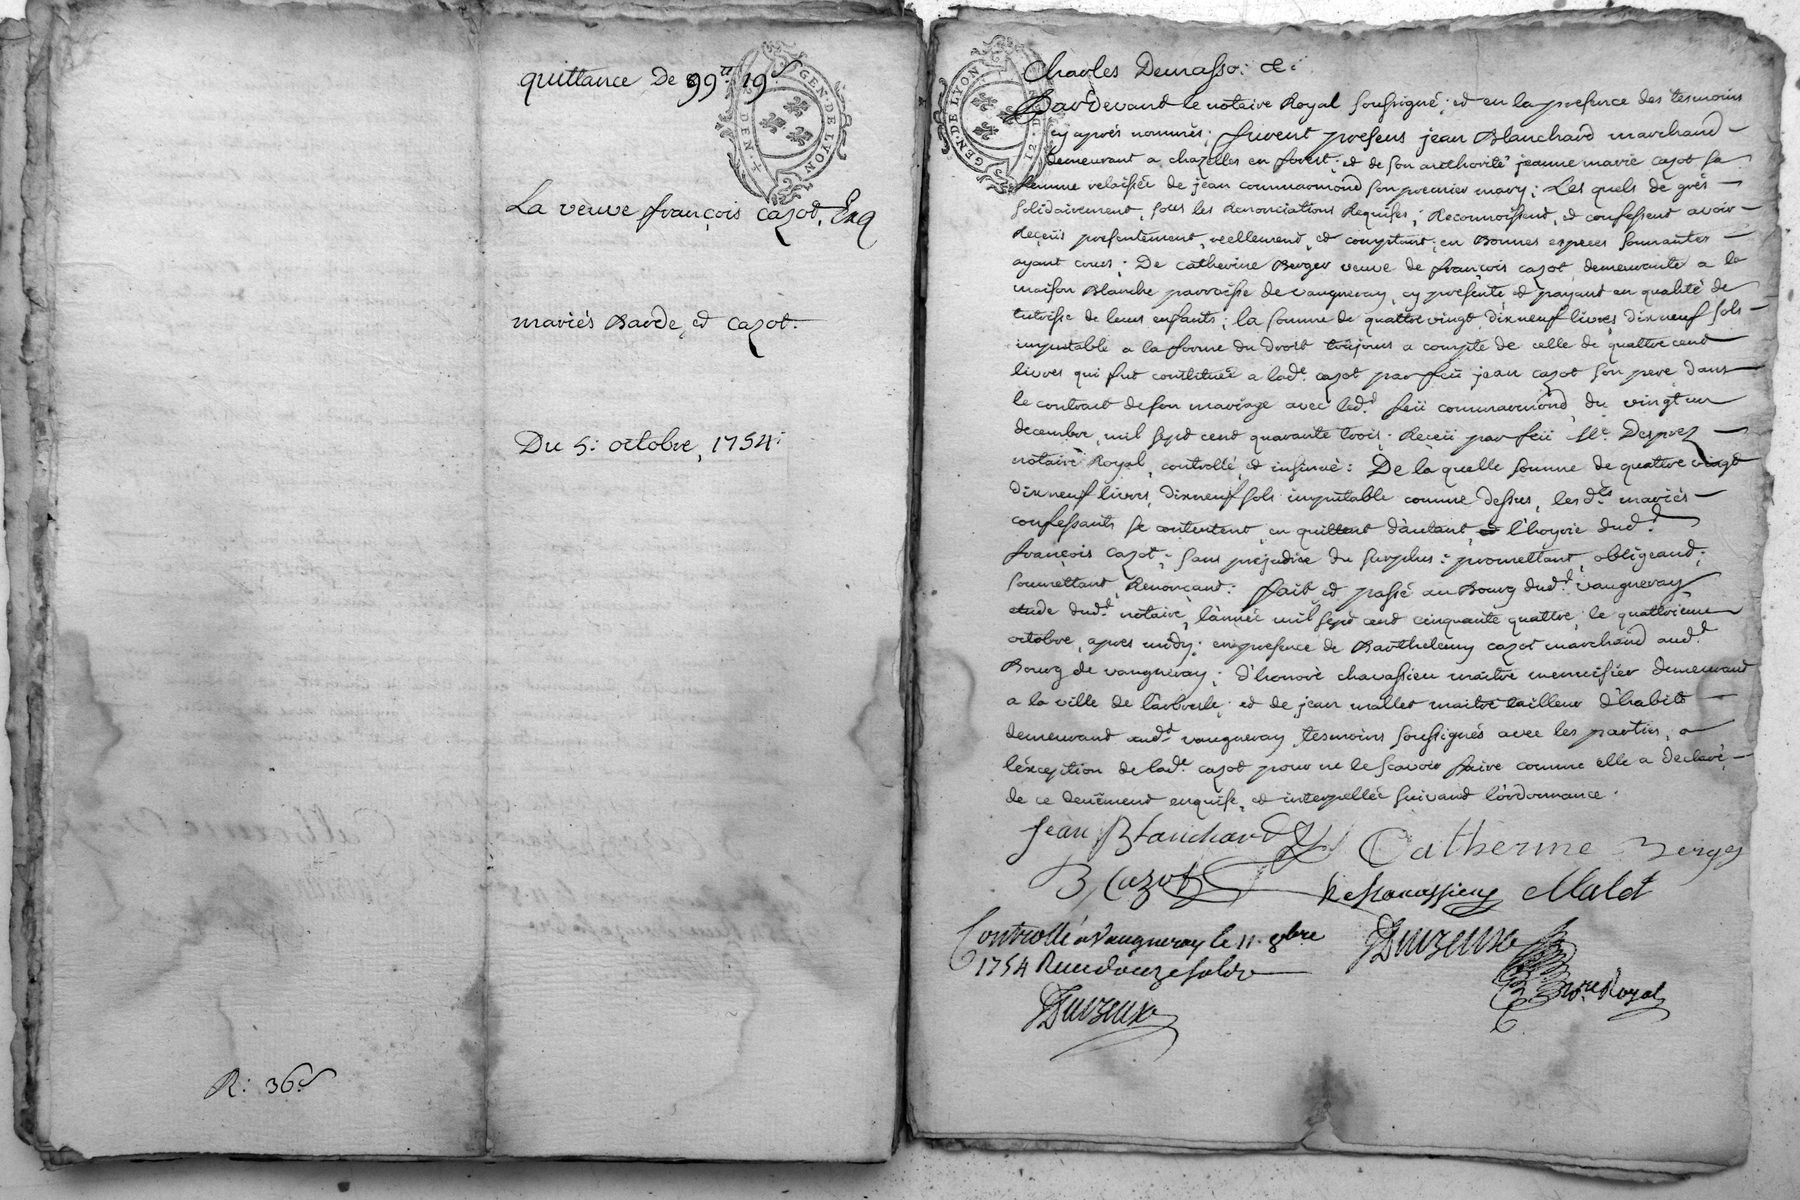 quittance De 99tt 19s
GEN. DE LYON
La veuve françois cazot,
mariés Barde, et cazot.
Du 5: octobre, 1754:
R: 36s
GEN. DE LYON
Charles Demasso: &:
Pardevant le notaire Royal soussigné; et en la presence des tesmoins
cy aprés nommés; furent presens jean Blanchard marchand
demeurant a chazelles en forest; et de son authorité jeanne marie cazot sa
femme relaissée de jean commarmond son premier mary; Les quels de grés
solidairement, sous les Renonciations Requises; Reconnoissent, et confessent avoir
Reçeüs presentement, réellement, et comptant; en Bonnes especes sonnantes
ayant cours; De catherine Berger veuve de françois cazot, demeurante a la
maison Blanche parroisse de vaugneray, cy presente, et payant en qualité de
tutrisse de leurs enfants; la somme de quattre vingt dixneuf livres dixneuf sols
imputable a la forme du droit toûjours a compte de celle de quattre cent
livres qui fut constituée a lade. cazot par feü jean cazot son pere, dans
le contract de son mariage avec led.t feü commarmond, du vingt un
decembre, mil sept cent quarante trois; Reçeü par feü Me. Desprez
notaire Royal, controllé, et insinué: De la quelle somme de quattre vingt
dixneuf livres, dixneuf sols imputable comme dessus, les d.ts mariés
confessants se contentent, en quittent d'autant, et l'hoyrie dud.t
françois cazot; sans prejudice du surplus: promettant, obligeand;
soumettant, Renonçant: fait et passé au Bourg dud.t vaugneray
etude dud.t notaire, l'année mil sept cent cinquante quattre, le quattrieme
octobre, apres midy; en presence de Barthelemy cazot marchand aud.t
Bourg de vaugneray; d'honoré chavassieu maitre menuisier demeurant
a la ville de l'arbresle; et de jean mallet maitre tailleur d'habits
demeurant aud.t vaugneray, tesmoins soussignés avec les parties, a
l'exception de lade. cazot pour ne le scavoir faire comme elle a declaré,
de ce deüement enquise, et interpellée suivant l'ordonnance.
jean Blanchard Catherine Berger
B Cazot h chavassieu Malet
Controllé a Vaugneray le 11. 8bre
1754 Recu douze sols
nore Royal